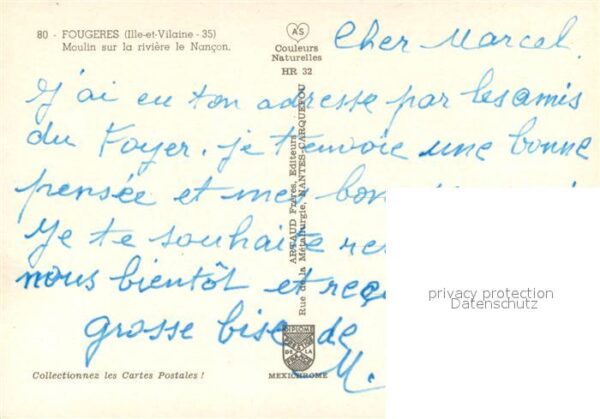 80 - FOUGERES (Ille-et-Vilaine - 35)
Moulin sur la rivière le Nançon.
AS
Couleurs
Naturelles
HR 32
Cher Marcel.
J'ai eu ton adresse par les amis
du Foyer. je t'envoie une bonne
pensée et mes bon
Je te souhaite re
nous bientôt et reç
grosse bise de
M.
ARTAUD Frères, Editeurs
Rue de la Métallurgie, NANTES-CARQUEFOU
privacy protection
Datenschutz
Collectionnez les Cartes Postales !
MEXICHROME